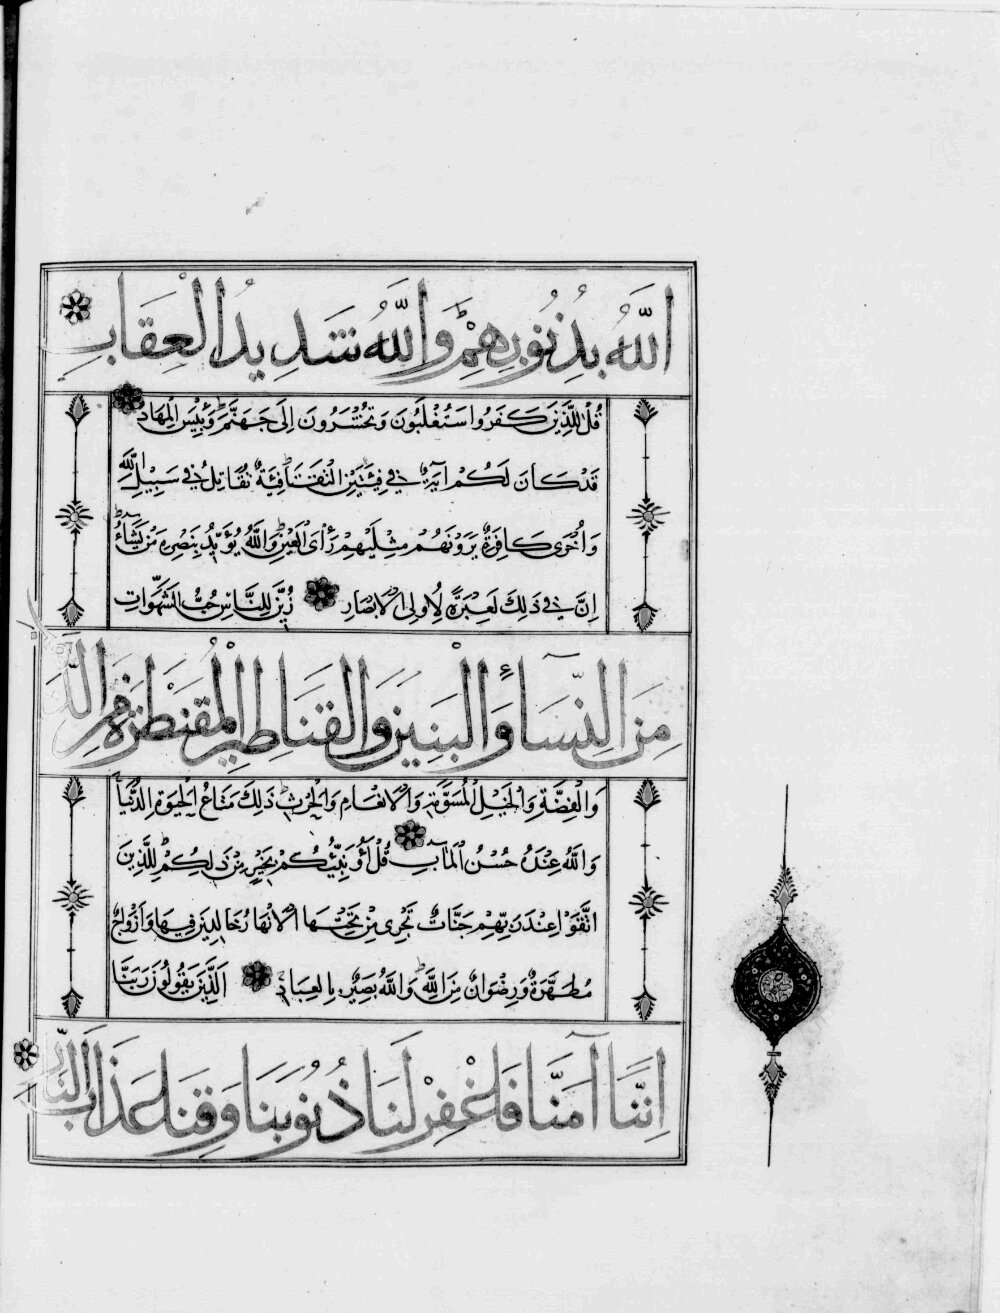 اللَّهُ بِذُنُوبِهِمْ وَاللَّهُ شَدِيدُ الْعِقَابِ
قُلْ لِلَّذِينَ كَفَرُوا سَتُغْلَبُونَ وَتُحْشَرُونَ إِلَى جَهَنَّمَ وَبِئْسَ الْمِهَادُ
قَدْ كَانَ لَكُمْ آيَةٌ فِي فِئَتَيْنِ الْتَقَتَا فِئَةٌ تُقَاتِلُ فِي سَبِيلِ اللَّهِ
وَأُخْرَى كَافِرَةٌ يَرَوْنَهُمْ مِثْلَيْهِمْ رَأْيَ الْعَيْنِ وَاللَّهُ يُؤَيِّدُ بِنَصْرِهِ مَنْ يَشَاءُ
إِنَّ فِي ذَلِكَ لَعِبْرَةً لِأُولِي الْأَبْصَارِ زُيِّنَ لِلنَّاسِ حُبُّ الشَّهَوَاتِ
مِنَ النِّسَاءِ وَالْبَنِينَ وَالْقَنَاطِيرِ الْمُقَنْطَرَةِ مِنَ الذَّهَبِ
وَالْفِضَّةِ وَالْخَيْلِ الْمُسَوَّمَةِ وَالْأَنْعَامِ وَالْحَرْثِ ذَلِكَ مَتَاعُ الْحَيٰوةِ الدُّنْيَا
وَاللَّهُ عِنْدَهُ حُسْنُ الْمَآبِ قُلْ أَؤُنَبِّئُكُمْ بِخَيْرٍ مِنْ ذَلِكُمْ لِلَّذِينَ
اتَّقَوْا عِنْدَ رَبِّهِمْ جَنَّاتٌ تَجْرِي مِنْ تَحْتِهَا الْأَنْهَارُ خَالِدِينَ فِيهَا وَأَزْوَاجٌ
مُطَهَّرَةٌ وَرِضْوَانٌ مِنَ اللَّهِ وَاللَّهُ بَصِيرٌ بِالْعِبَادِ الَّذِينَ يَقُولُونَ رَبَّنَا
إِنَّنَا آمَنَّا فَاغْفِرْ لَنَا ذُنُوبَنَا وَقِنَا عَذَابَ النَّارِ